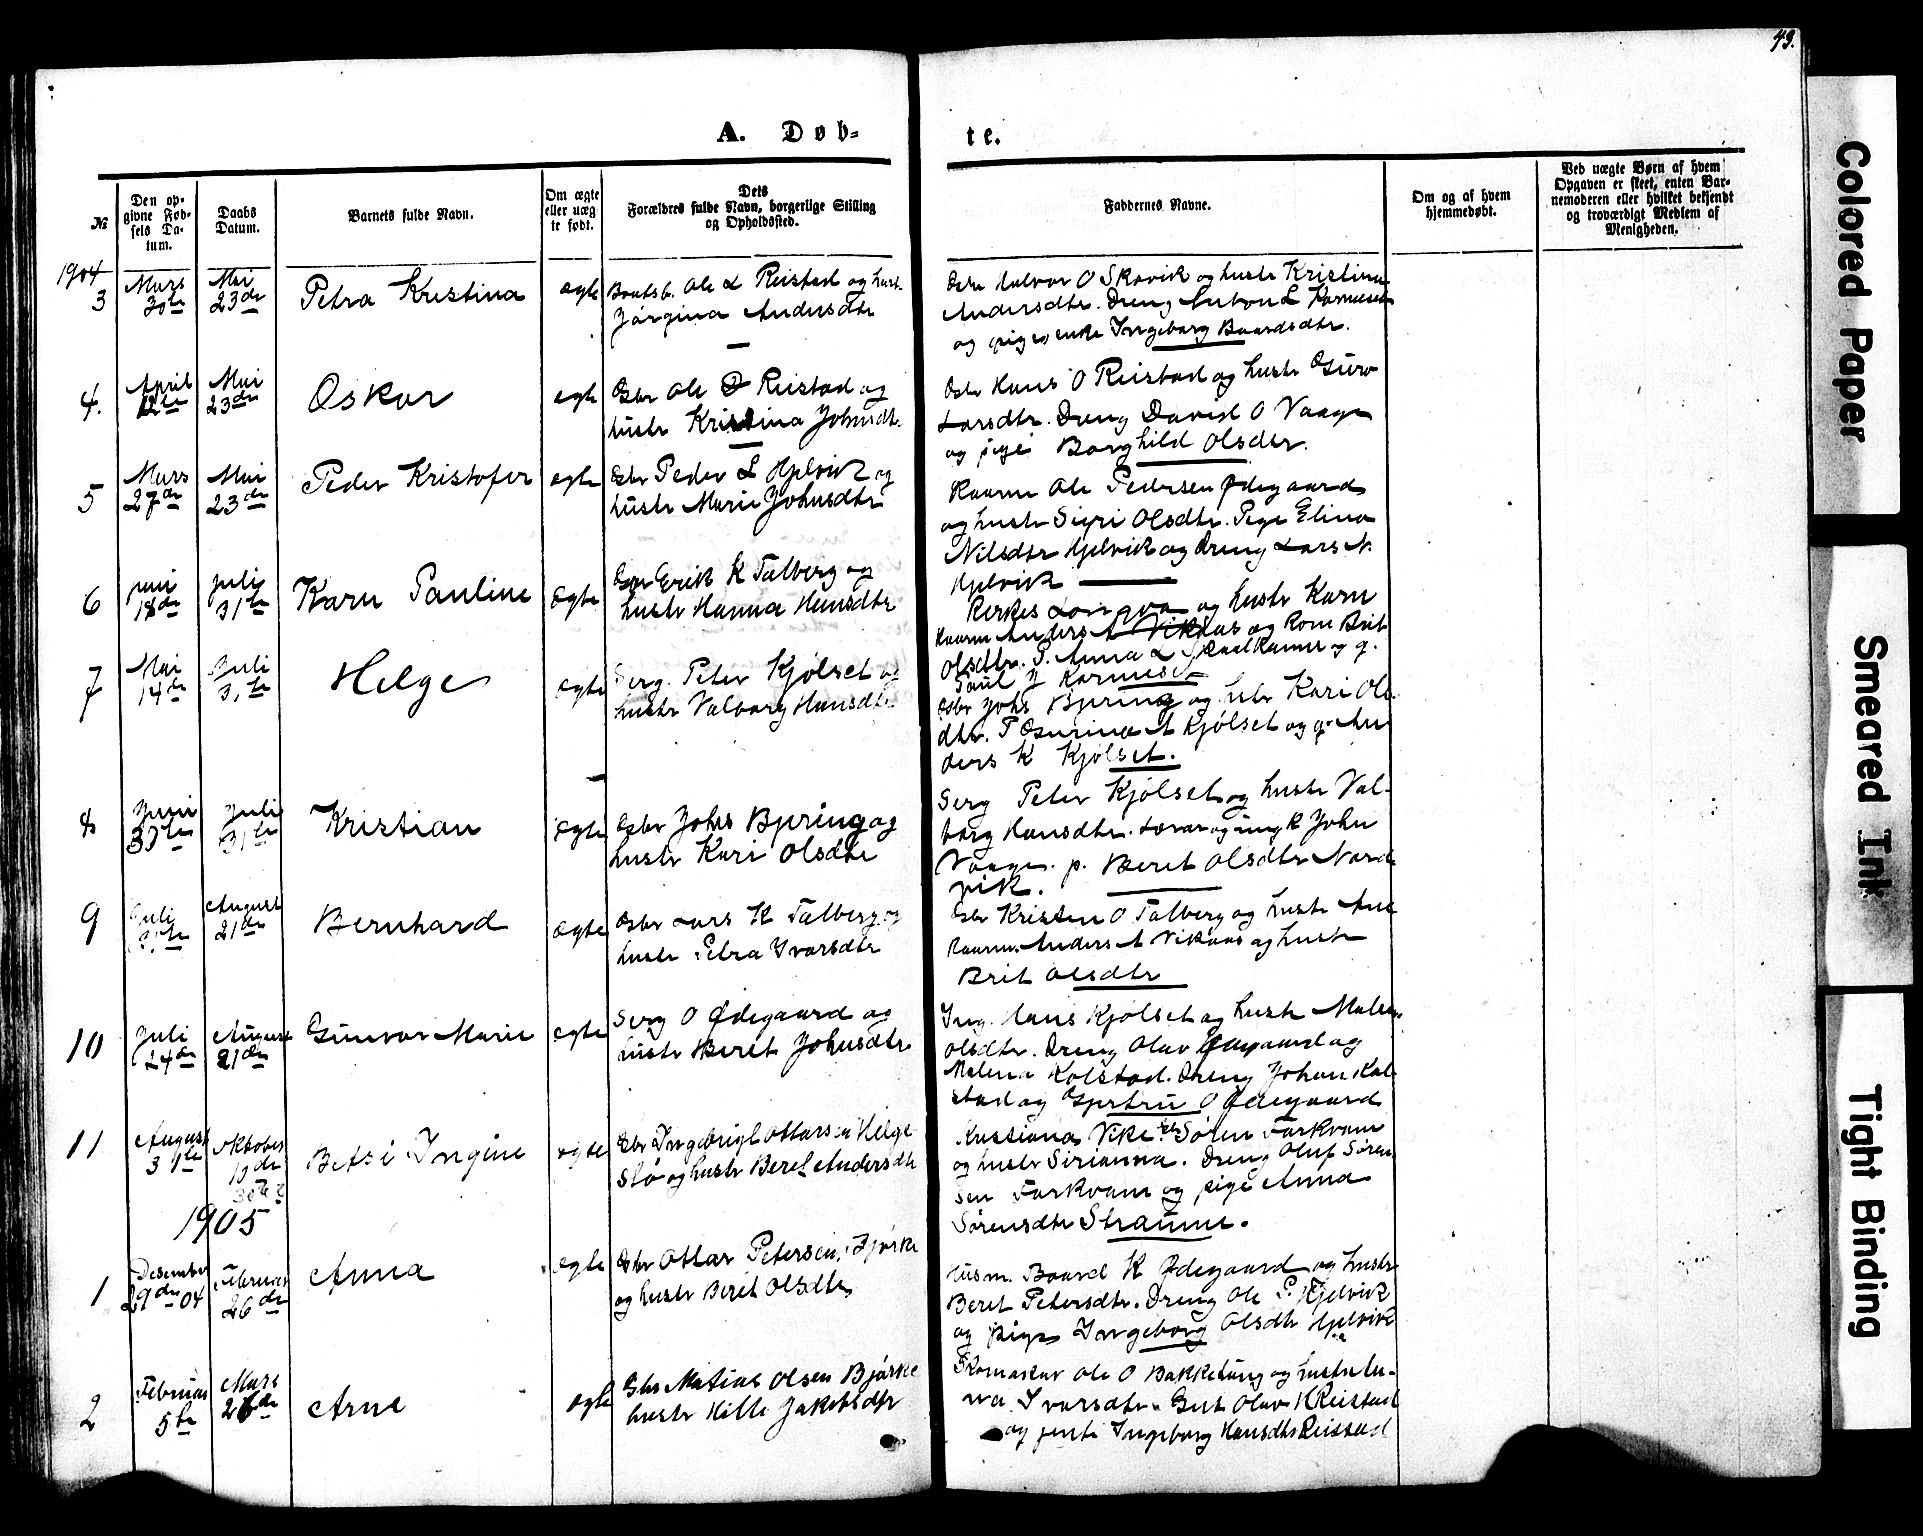 43.
A. Døb-
te.
№
Den op-
givne Fød-
sels Da-
tum.
Daabs
Datum.
Barnets fulde Navn.
Om ægte
eller uæg
te født.
Dets
Forældres fulde Navn, borgerlige Stilling
og Opholdssted.
Faddernes Navne.
Om og af hvem
hjemmedøbt.
Ved uægte Børn af hvem
Opgaven er skeet, enten Bar-
nemoderen eller hvilket bekjendt
og troværdigt Medlem af
Menigheden.
1904
3
Mars
30te
Mai
23de
Petra Kristina
ægte
Ole L Reistad og hust.
Jørgina Andersdtr
Halvor O Skovik og hustr Kristina
Andersdtr. Dreng Anton L
og pigeenke Ingeborg Baardsdtr.
4.
April
12te
Mai
23de
Oskar
ægte
Gbr Ole O Reistad og
hustr Kristina Johnsdtr.
Gbr Hans O Reistad og hustr Guro
Larsdtr. Dreng David O Vaage
og pige Borghild Olsdtr.
5
Mars
27de
Mai
23de
Peder Kristofer
ægte
Gbr Peder L Hjelvik og
hustr Marie Johnsdtr
Kaarm Ole Pedersen Ødegaard
og hustr Sigri Olsdtr. Pige Elina
Nilsdtr Hjelvik og Dreng Lars N.
Hjelvik
6
juni
18de
juli
31te
Karn Pauline
ægte
Gbr Erik K Talberg og
hustr Hanna Hansdtr
Longva og hustr Karn
Kaarm Anders A Vikaas og Kone Brit
Olsdtr. P. Anna L
7
Mai
14te
Juli
31te
Helge
ægte
Serg. Peter Kjølset og
hustr Valborg Hansdtr
Gbr Johs Bjering og hustr Kari Ols
dtr. P Gurina A Kjølset og g. An
ders K Kjølset.
8
Juni
30te
Julie
31te
Kristian
ægte
Gbr Johs Bjering og
hustr Kari Olsdtr
Serg Peter Kjølset og hustr Val-
borg Hansdtr. Lærer og ungk John
Vaage. p. Beret Olsdtr Nord
vik.
9
Juli
31te
August
21de
Bernhard
ægte
Gbr Lars K Talberg og
hustr Petra Ivarsdtr
Gbr Kristen O Talberg og hustr Ane
Kaarm. Anders A Vikaas og hustr
Brit Olsdtr
10
Juli
24de
August
21de
Gunvor Marie
ægte
Serg O Ødegaard og
hustr Beret Johnsdtr
Ing. Hans Kjølset og hustr Malena
Olsdtr. Dreng Olav Ødegaard og
Malena Kolstad. Dreng Johan Kol
stad og Gjertru O Ødegaard
11
August
31te
Oktober
Betsi Ingine
ægte
Gbr Ingebrigt Ottarsen Helge
stø og hustr Beret Andersdtr
Kristiana Vike Gbr Søren Farkvam
og hustr Sirianna. Dreng Oluf Søren
sen Farkvam og pige Anna
Sørensdtr Straume.
1905
1
Desember
29de 04
Februar
26de
Anna
ægte
Gbr Ottar Petersen Bjørke
og hustr Beret Olsdtr
Husm. Baard K Ødegaard og hustr
Beret Petersdtr. Dreng Ole P. Hjelvik
og pige Ingeborg Olsdtr Hjelvik
2
Februar
5te
Mars
26de
Arne
ægte
Gbr Matias Olsen Bjørke
hustr Jakobsdtr
Skomaker Ole O Bakketung og hustr An-
na Ivarsdtr. Gut Olav K Reistad
og jente Ingeborg Hansdtr Reistad
Colored Paper
Smeared Ink
Tight Binding